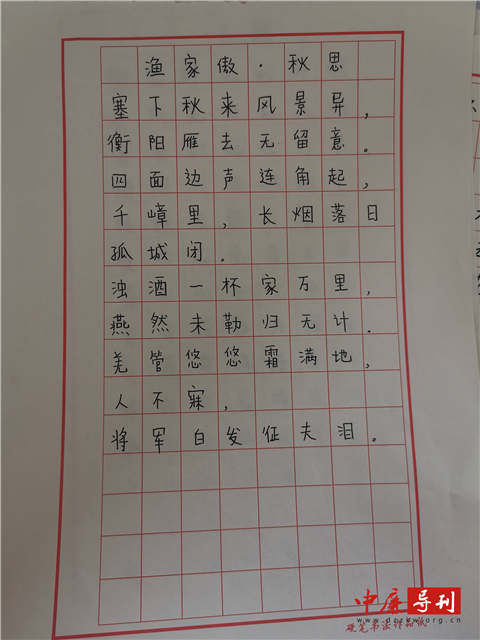 渔家傲·秋思
塞下秋来风景异，
衡阳雁去无留意。
四面边声连角起，
千嶂里，长烟落日
孤城闭.
浊酒一杯家万里，
燕然未勒归无计.
羌管悠悠霜满地，
人不寐，
将军白发征夫泪。
硬笔书法作品纸
中廉导刊
www.dzzkw.org.cn